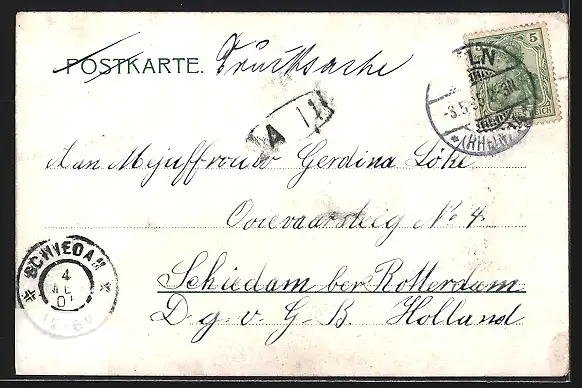 POSTKARTE. Drucksache
5
LN
-3.5.
(RHEIN)
A
Aan Mejuffrouw Gerdina Löke
Ooievaarsteeg No 4
Schiedam ber Rotterdam
D. g. v. G. B. Holland
SCHIEDAM
4